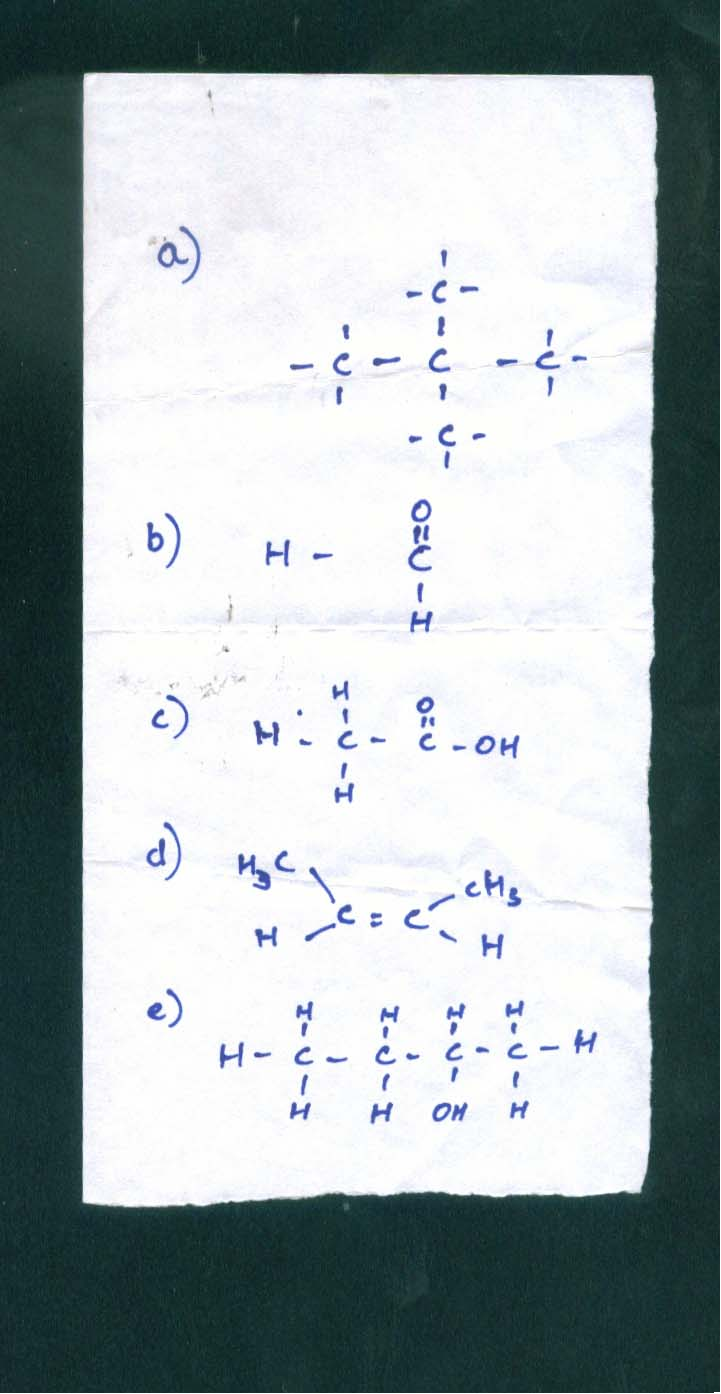 a)
'
- C -
'
' ' '
- C - C - C -
' ' '
- C -
'
b)
O
H - C
H
c)
H O
H - C - C - OH
H
d)
H₃C CH₃
C = C
H H
e)
H H H H
H - C - C - C - C - H
H H OH H